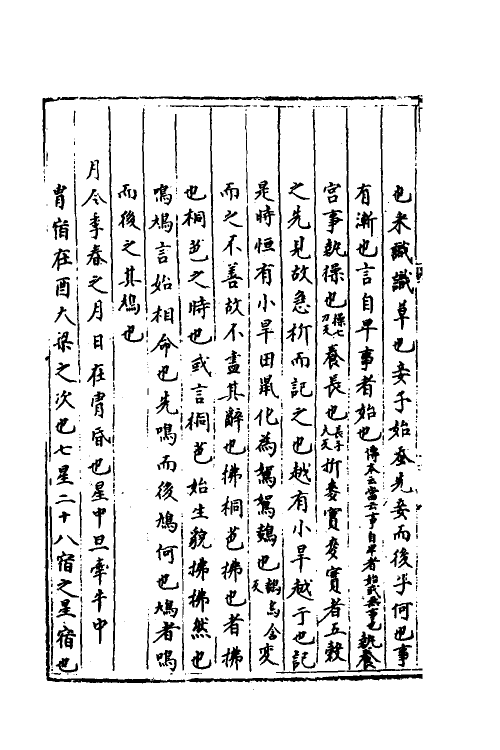 也采識識草也妾子始蚕先妾而後子何也事
有漸也言自卑事者始也傳本云當云事自卑者始或無事也執養
宮事執操也操七刀天養長也長子丈天祈麥實麥實者五穀
之先見故急祈而記之也越有小旱越于也記
是時恒有小旱田鼠化為鴽鴽鵪也鵪烏含天変
而之不善故不盡其辭也拂桐芭拂也者拂
也桐芭之時也或言桐芭始生貌拂拂然也
鳴鳩言始相命也先鳴而後鳩何也鳩者鳴
而後之其鳩也
月令季春之月日在胃昏七星中旦牽牛中
胃宿在酉大梁之次也七星二十八宿之星宿也